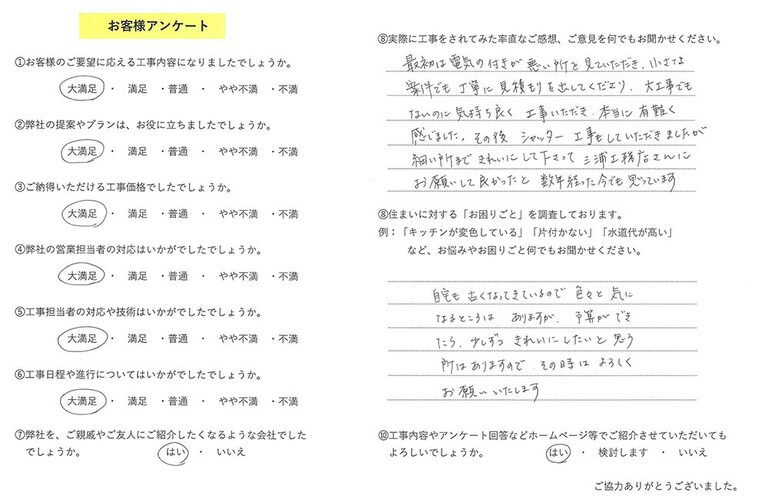 お客様アンケート
①お客様のご要望に応える工事内容になりましたでしょうか。
大満足 ・ 満足 ・普通 ・ やや不満 ・不満
②弊社の提案やプランは、お役に立ちましたでしょうか。
大満足 ・ 満足 ・普通 ・ やや不満 ・不満
③ご納得いただける工事価格でしたでしょうか。
大満足 ・ 満足 ・普通 ・ やや不満 ・不満
④弊社の営業担当者の対応はいかがでしたでしょうか。
大満足 ・ 満足 ・普通 ・ やや不満 ・不満
⑤工事担当者の対応や技術はいかがでしたでしょうか。
大満足 ・ 満足 ・普通 ・ やや不満 ・不満
⑥工事日程や進行についてはいかがでしたでしょうか。
大満足 ・ 満足 ・普通 ・ やや不満 ・不満
⑦弊社を、ご親戚やご友人にご紹介したくなるような会社でした
でしょうか。 はい ・ いいえ
⑧実際に工事をされてみた率直なご感想、ご意見を何でもお聞かせください。
最初は電気の付きが悪い所を見ていただき、小さな
案件でも丁寧に見積もりを出してくださり、大工事でも
ないのに気持ち良く工事いただき、本当に有難く
感じました。その後シャッター工事もしていただきましたが
細い所まできれいにして下さって三浦工務店さんに
お願いして良かったと数年経った今でも思っています
⑧住まいに対する「お困りごと」を調査しております。
例：「キッチンが変色している」「片付かない」「水道代が高い」
など、お悩みやお困りごと何でもお聞かせください。
自宅も古くなってきているので色々と気に
なるところはありますが、予算ができ
たら、少しずつきれいにしたいと思う
所はありますので、その時はよろしく
お願いいたします
⑩工事内容やアンケート回答などホームページ等でご紹介させていただいても
よろしいでしょうか。 はい ・ 検討します ・ いいえ
ご協力ありがとうございました。